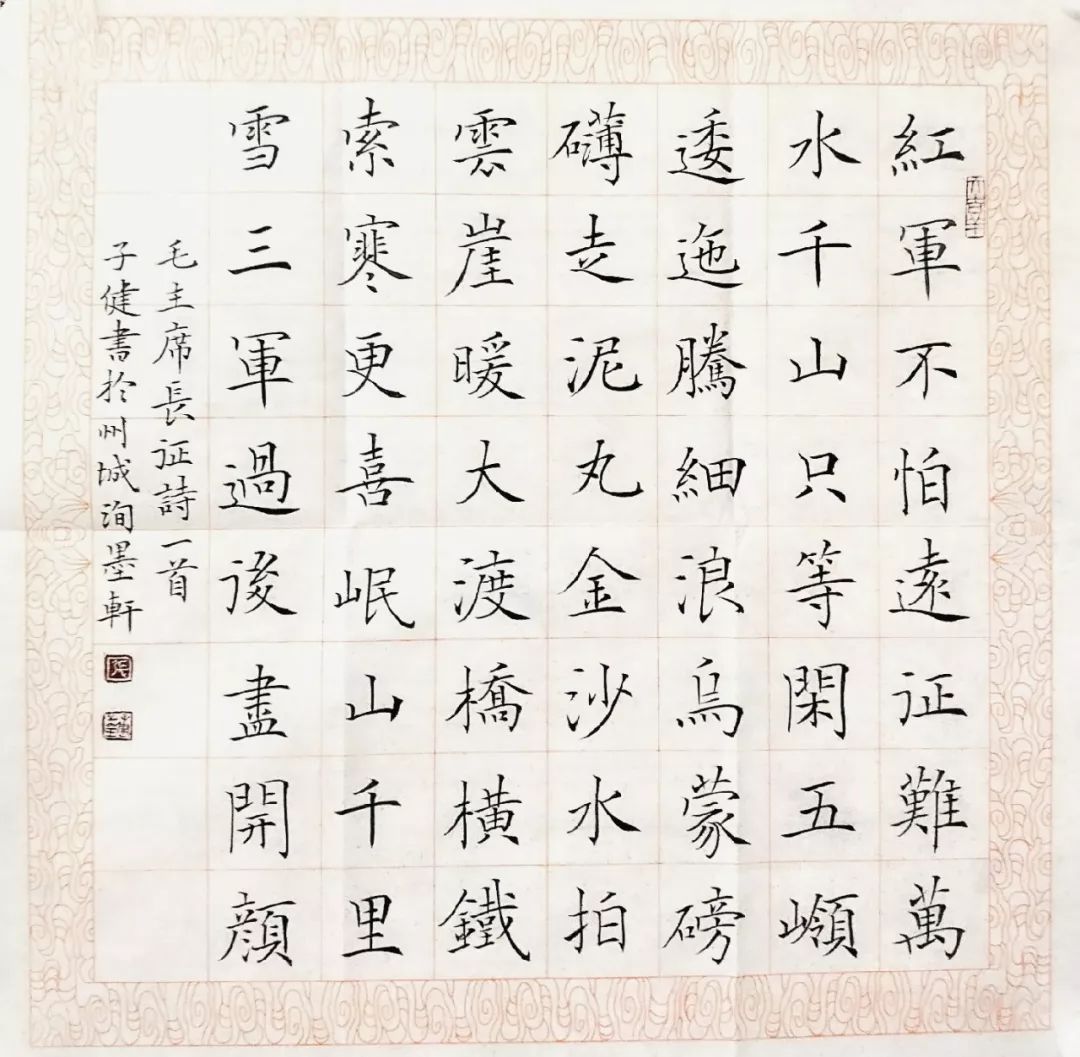 紅軍不怕遠征難萬
水千山只等閑五嶺
逶迤騰細浪烏蒙磅
礴走泥丸金沙水拍
雲崖暖大渡橋橫鐵
索寒更喜岷山千里
雪三軍過後盡開顏
毛主席長征詩一首
子健書於州城洵墨軒